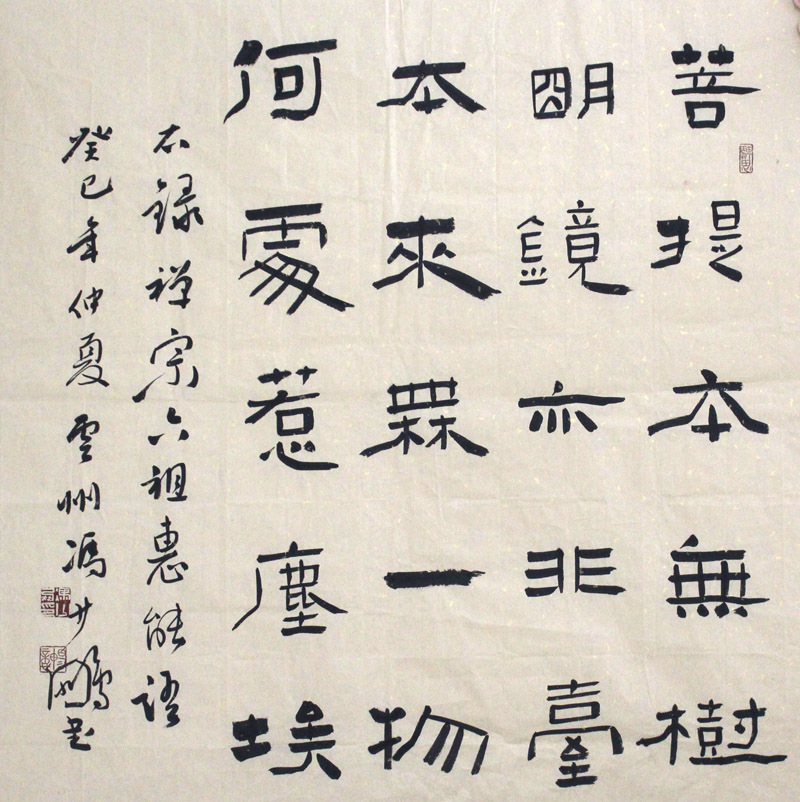 菩提本無樹
朙鏡亦非臺
本來無一物
何處惹塵埃
右録禅宗六祖惠能语
癸巳年仲夏雲州冯鹏书